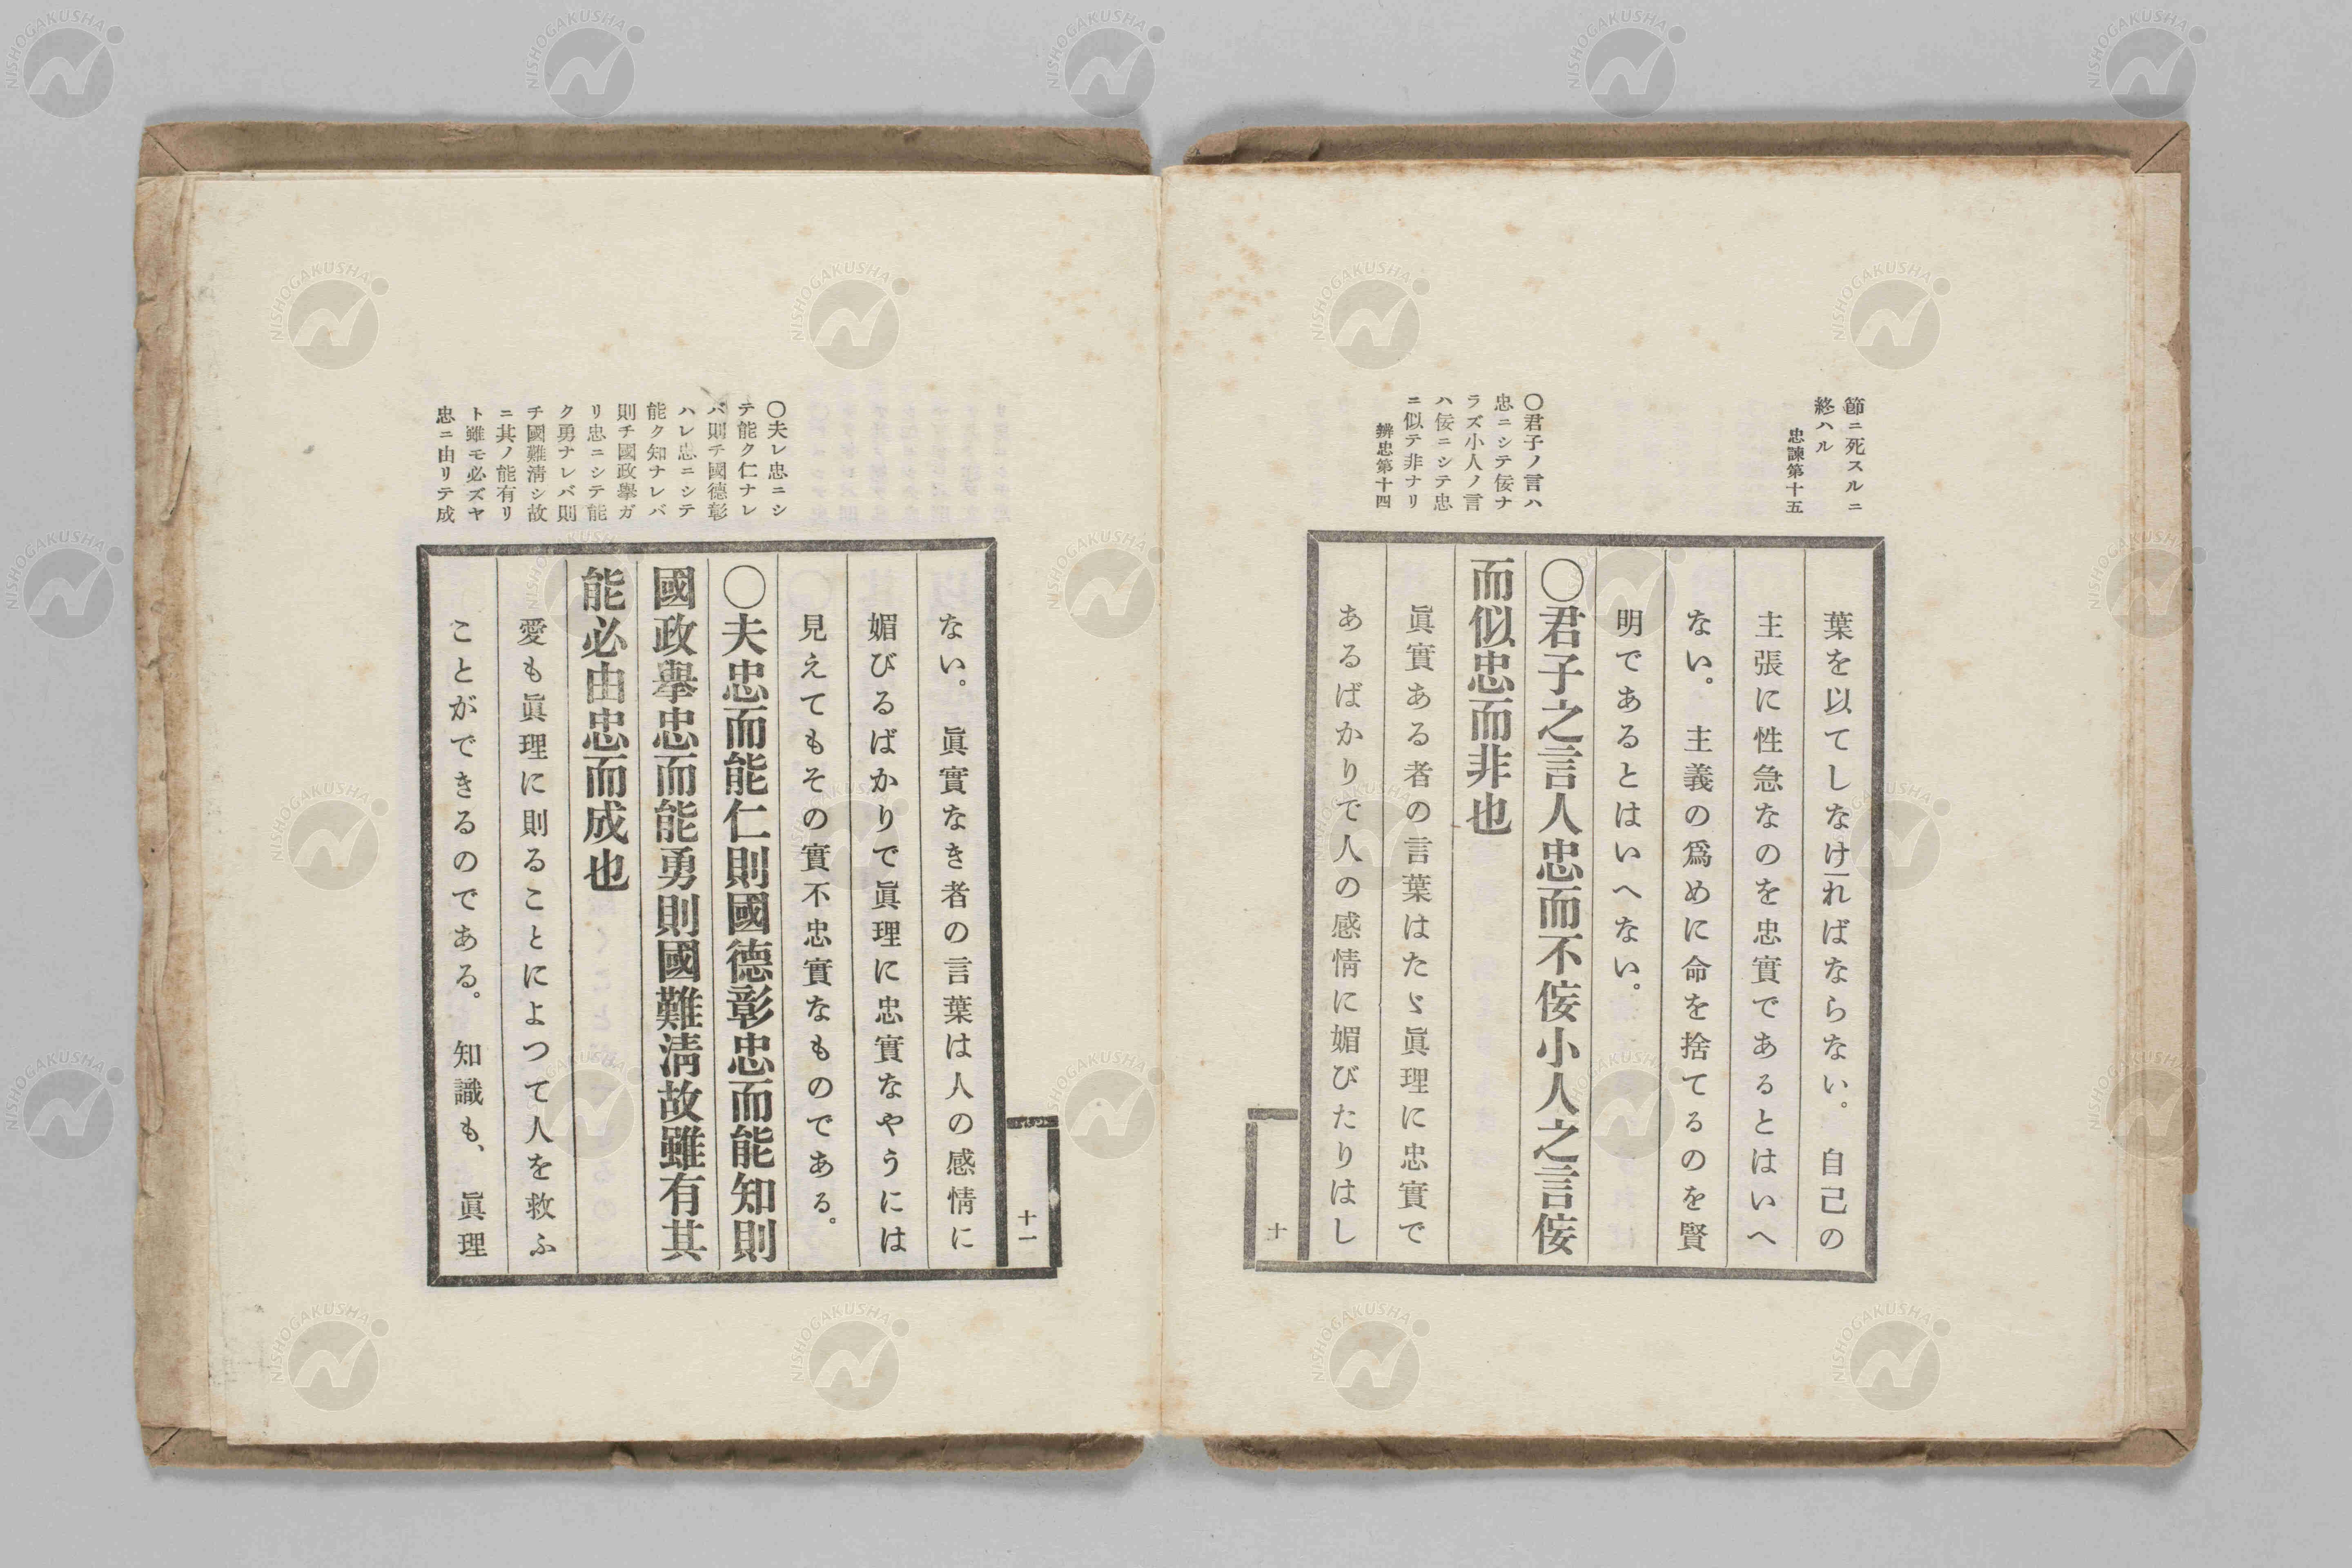 節ニ死スルニ
終ハル
忠諫第十五
〇君子ノ言ハ
忠ニシテ佞ナ
ラズ小人ノ言
ハ佞ニシテ忠
ニ似テ非ナリ
辨忠第十四
葉を以てしなければならない。自己の
主張に性急なのを忠實であるとはいへ
ない。主義の爲めに命を捨てるのを賢
明であるとはいへない。
〇君子之言人忠而不佞小人之言佞
而似忠而非也
眞實ある者の言葉はたゞ眞理に忠實で
あるばかりで人の感情に媚びたりはし
十
〇夫レ忠ニシ
テ能ク仁ナレ
バ則チ國德彰
ハレ忠ニシテ
能ク知ナレバ
則チ國政擧ガ
リ忠ニシテ能
ク勇ナレバ則
チ國難淸シ故
ニ其ノ能有リ
ト雖モ必ズヤ
忠ニ由リテ成
十一
ない。眞實なき者の言葉は人の感情に
媚びるばかりで眞理に忠實なやうには
見えてもその實不忠實なものである。
〇夫忠而能仁則國德彰忠而能知則
國政擧忠而能勇則國難淸故雖有其
能必由忠而成也
愛も眞理に則ることによつて人を救ふ
ことができるのである。知識も、眞理
NISHOGAKUSHA